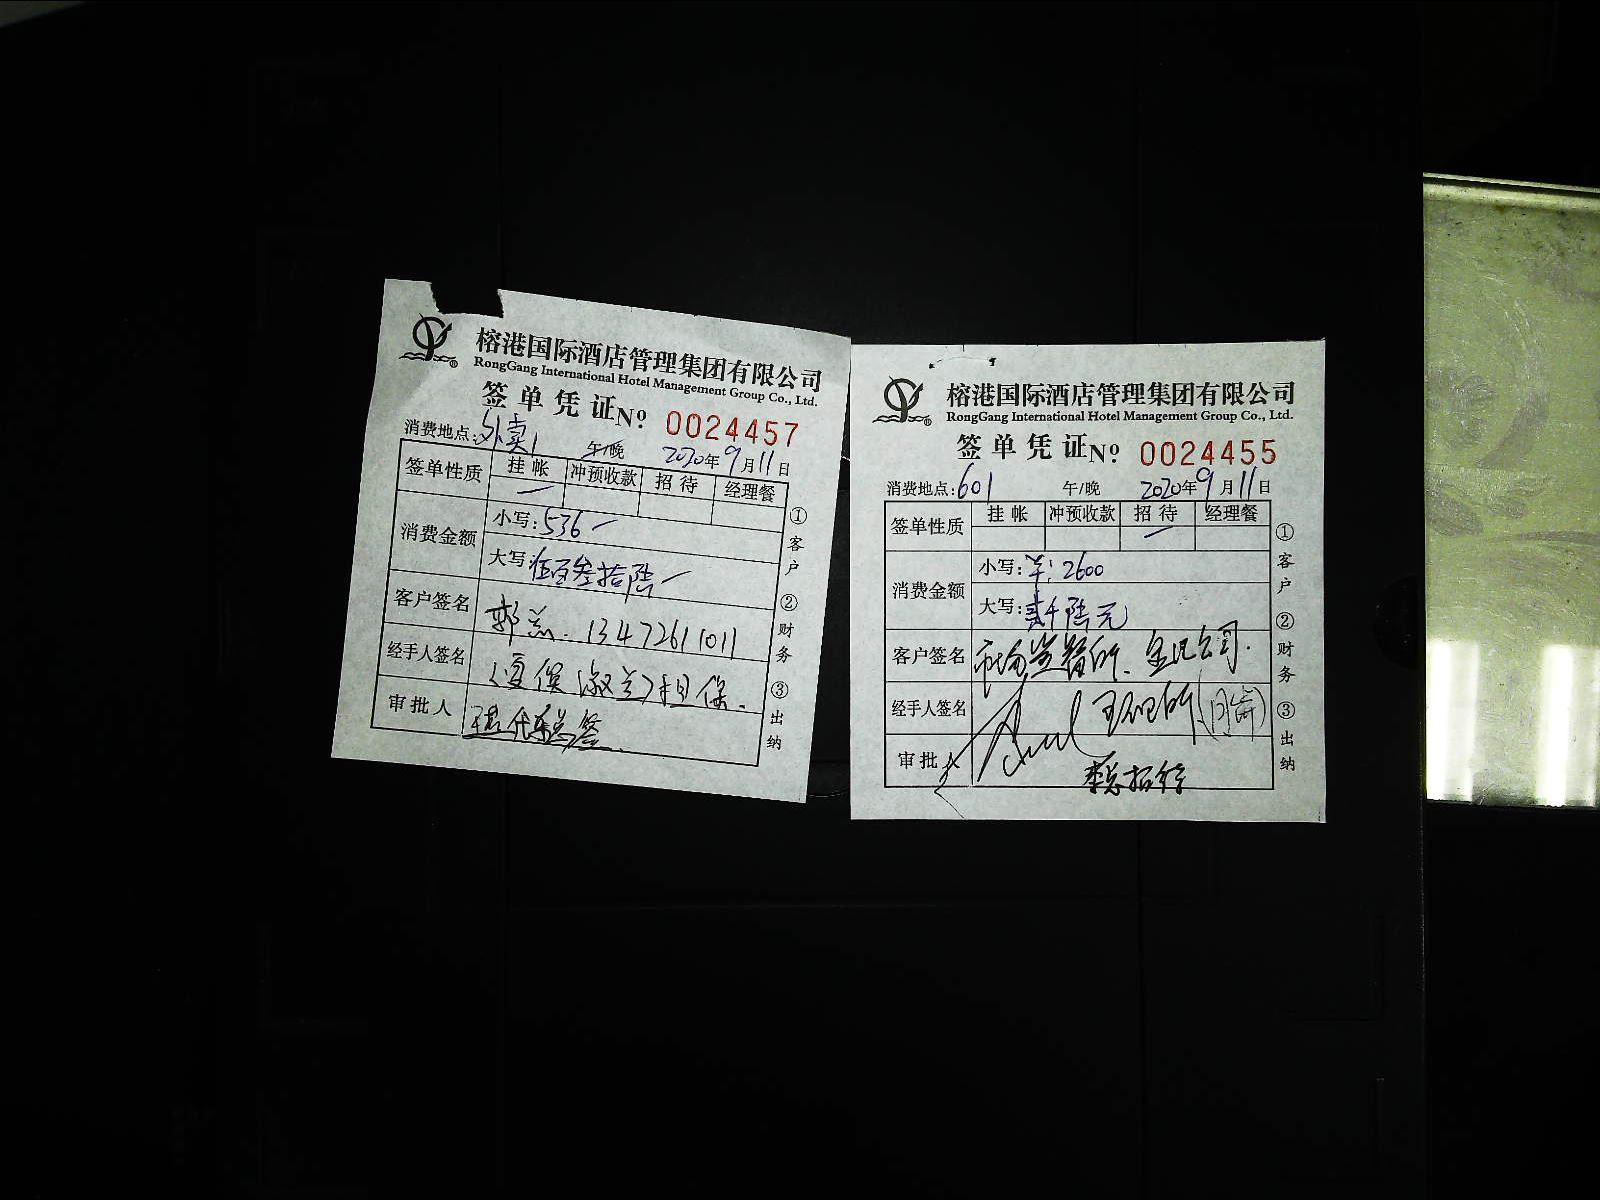 榕港国际酒店管理集团有限公司
RongGang International Hotel Management Group Co., Ltd.
签单凭证 Nº 0024457
消费地点:外卖1 午/晚 2020年9月11日
签单性质 挂帐 冲预收款 招待 经理餐
消费金额 小写:536
大写:伍百叁拾陆
客户签名 13472611011
经手人签名 担保.
审批人 签
①客户 ②财务 ③出纳
榕港国际酒店管理集团有限公司
RongGang International Hotel Management Group Co., Ltd.
签单凭证 Nº 0024455
消费地点:601 午/晚 2020年9月11日
签单性质 挂帐 冲预收款 招待 经理餐
消费金额 小写:羊:2600
大写:贰千陆元
客户签名 公司.
经手人签名
审批人 李总招待
①客户 ②财务 ③出纳